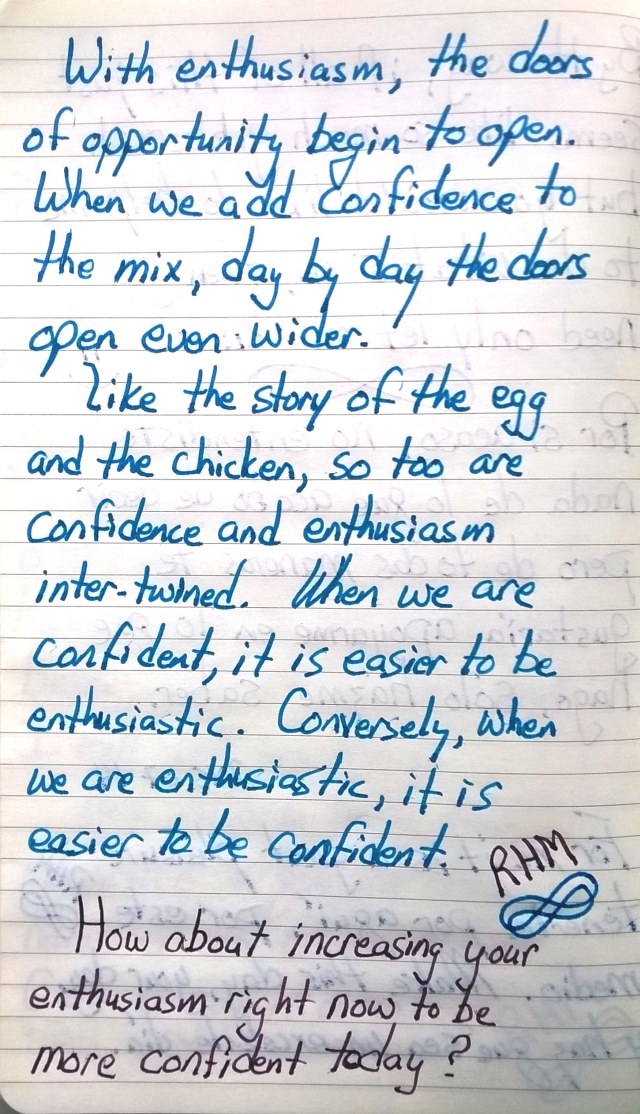 With enthusiasm, the doors
of opportunity begin to open.
When we add confidence to
the mix, day by day the doors
open even wider.
Like the story of the egg
and the chicken, so too are
confidence and enthusiasm
inter-twined. When we are
confident, it is easier to be
enthusiastic. Conversely, when
we are enthusiastic, it is
easier to be confident.
RHM
How about increasing your
enthusiasm right now to be
more confident today?